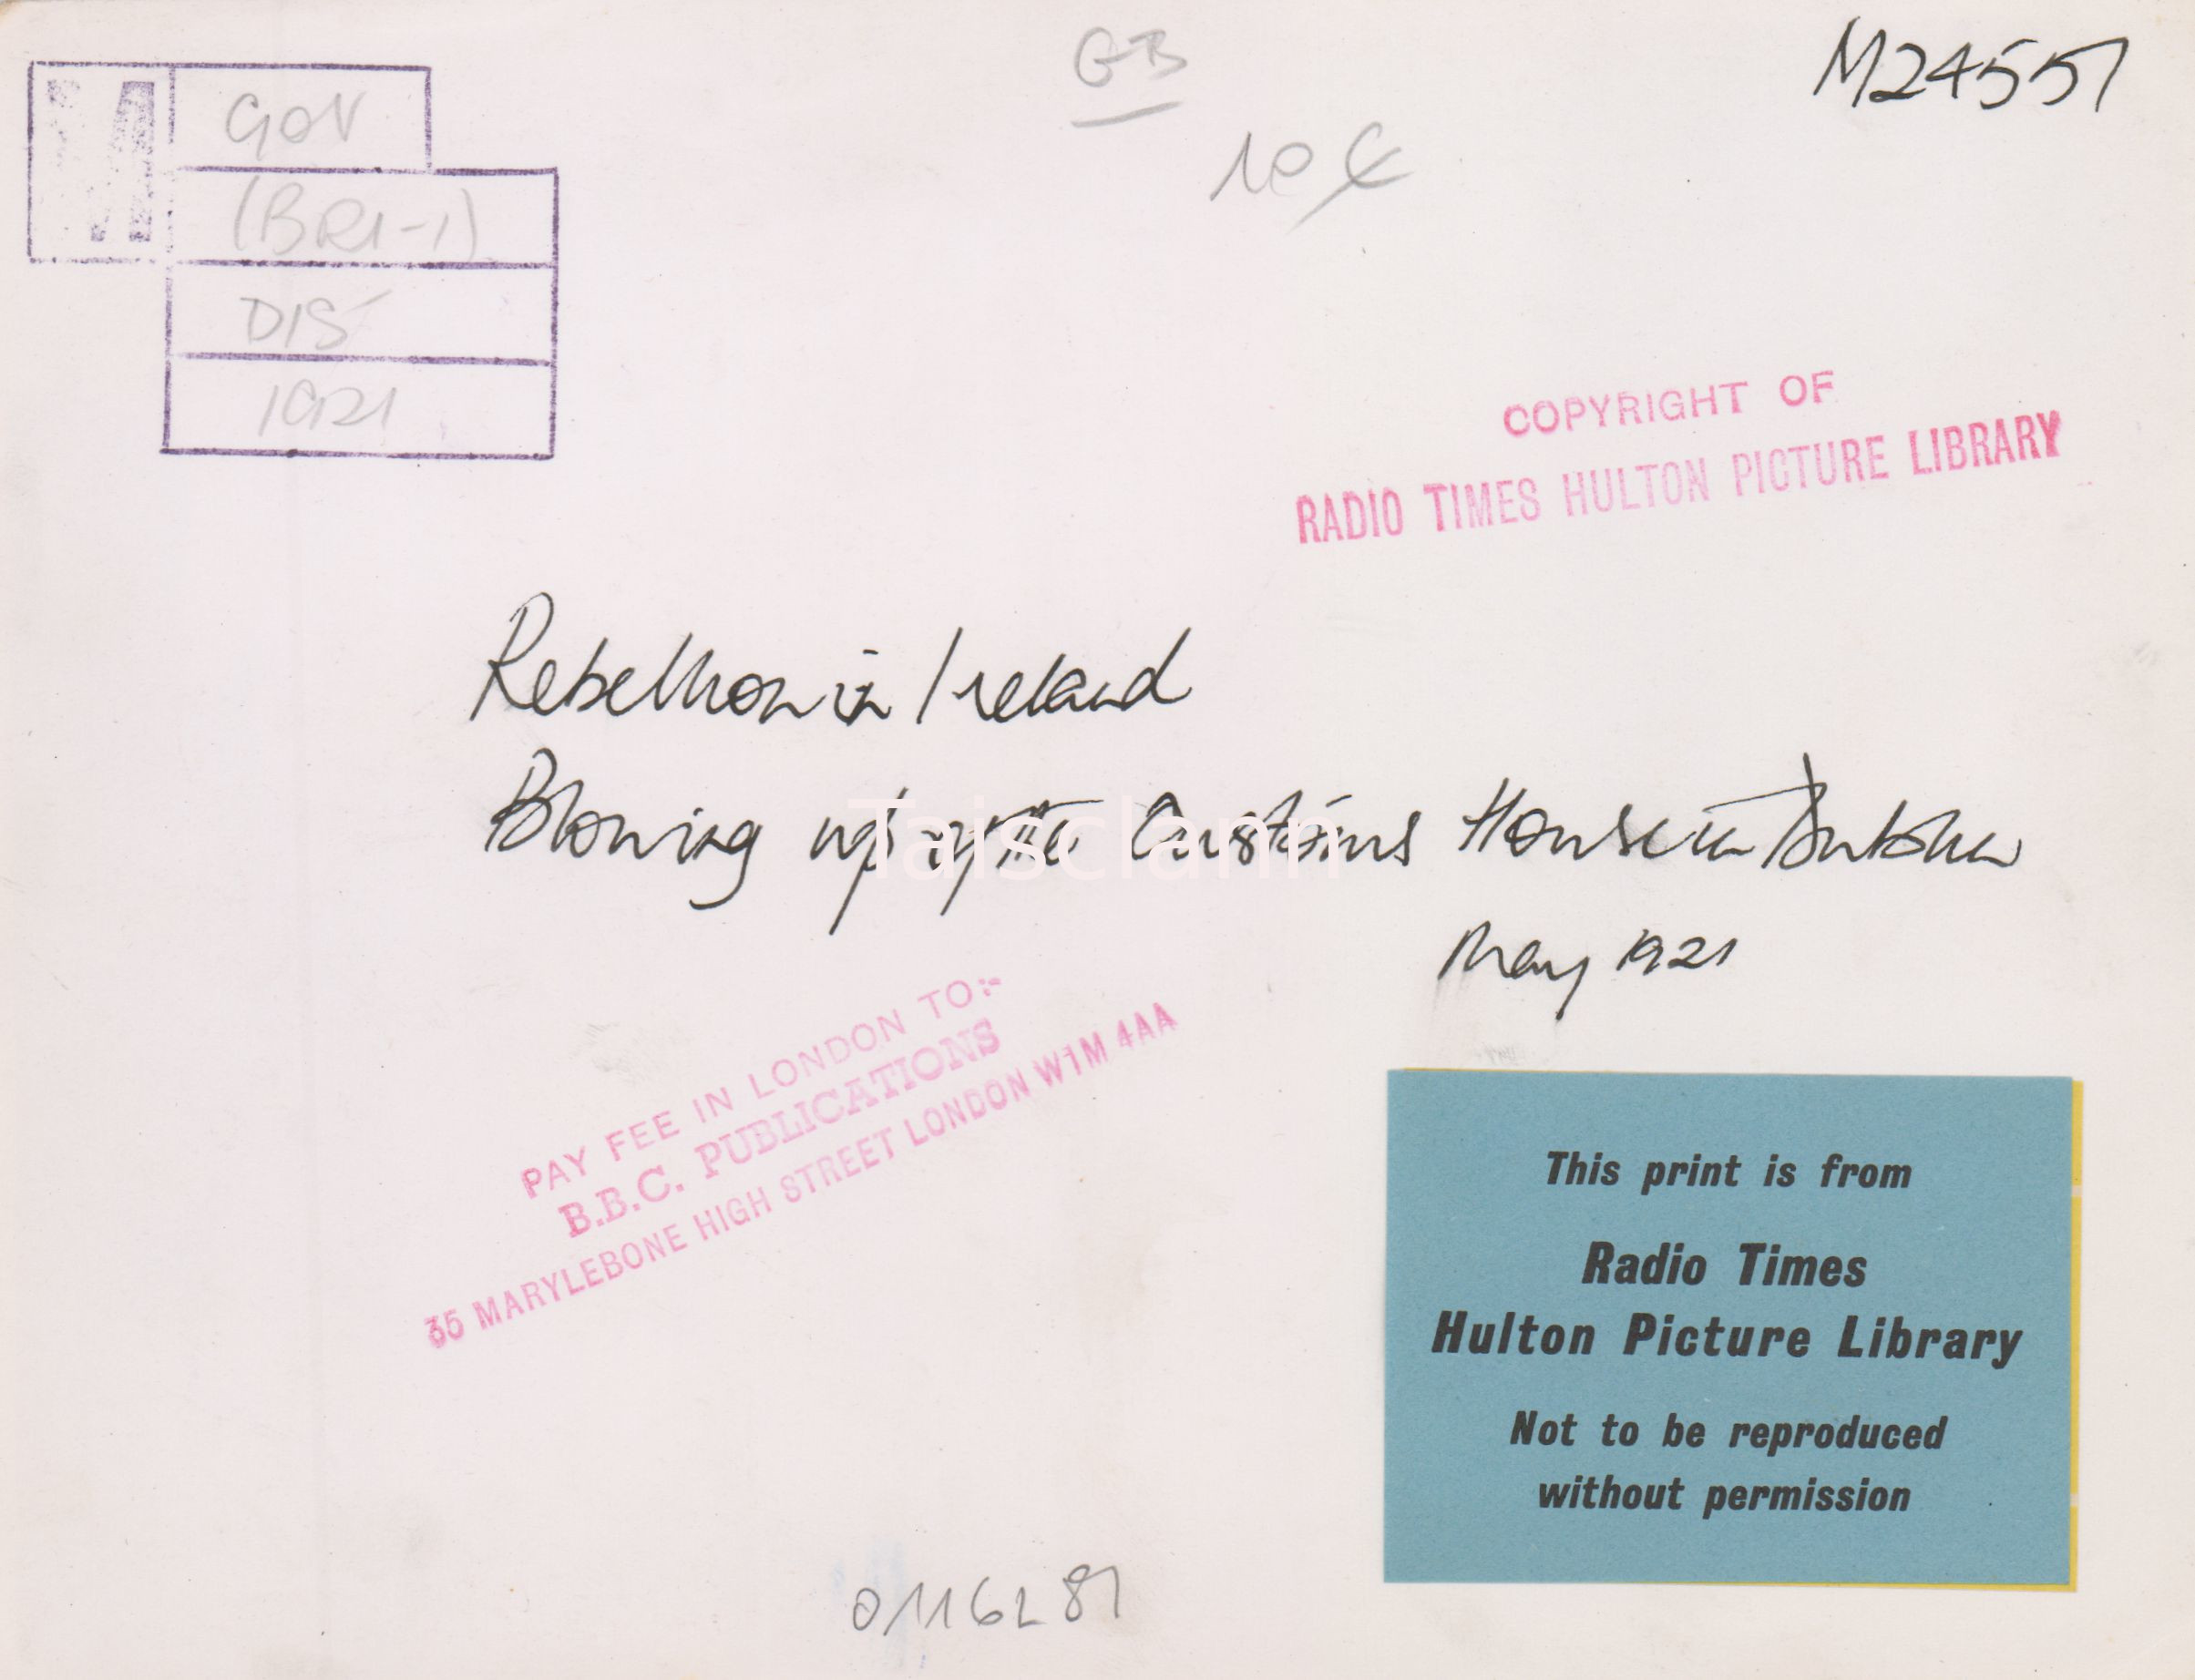 GB
M24557
10
GOV
(BRI-1)
DIS
1921
COPYRIGHT OF
RADIO TIMES HULTON PICTURE LIBRARY
Rebellion in Ireland
Blowing up of the Customs House in Dublin
May 1921
Taisclann
PAY FEE IN LONDON TO:-
B.B.C. PUBLICATIONS
35 MARYLEBONE HIGH STREET LONDON W1M 4AA
This print is from
Radio Times
Hulton Picture Library
Not to be reproduced
without permission
0116287